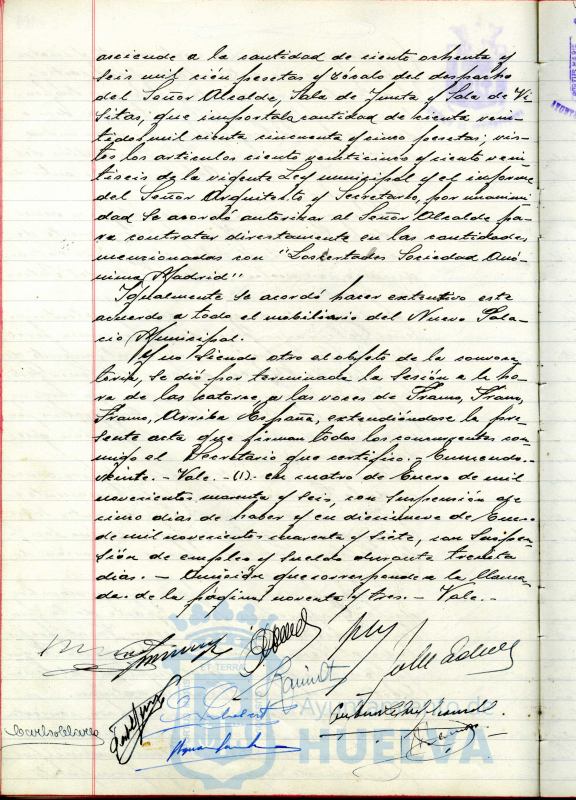 asciende a la cantidad de ciento ochenta y
seis mil cien pesetas y zócalo del despacho
del Señor Alcalde, Sala de Junta y Sala de Vi-
sitas, que importa la cantidad de cienta vein-
tidos mil cienta cincuenta y cinco pesetas; vis-
tos los articulos ciento veinticinco y ciento vein-
tiseis de la vigente Ley municipal y el informe
del Señor Arquitecto y Secretario, por unanimi-
dad se acordó autorizar al Señor Alcalde pa-
ra contratar directamente en las cantidades
mencionadas con "Loscertales Sociedad Anó-
nima Madrid"
Igualmente se acordó hacer extentivo este
acuerdo a todo el mobiliario del Nuevo Pala-
cio Municipal.
Y no siendo otro el objeto de la convoca-
toria, se dió por terminada la sesión a la ho-
ra de las catorce, a las voces de Franco, Franco,
Franco, Arriba España, extendiéndose la pre-
sente acta que firman todos los concurrentes con-
migo el Secretario que certifico. - Enmendo.-
veinte. - Vale. - (1). en cuatro de Enero de mil
novecientos cuarenta y seis, con suspensión de
cinco dias de haber y en diecinueve de Enero
de mil novecientos cuarenta y siete, con Suspen-
sión de empleo y sueldo durante treinta
dias. - Omisión que corresponde a la llama-
da de la página noventa y tres. - Vale. -
EF TERRAE
Ayuntamiento de
HUELVA